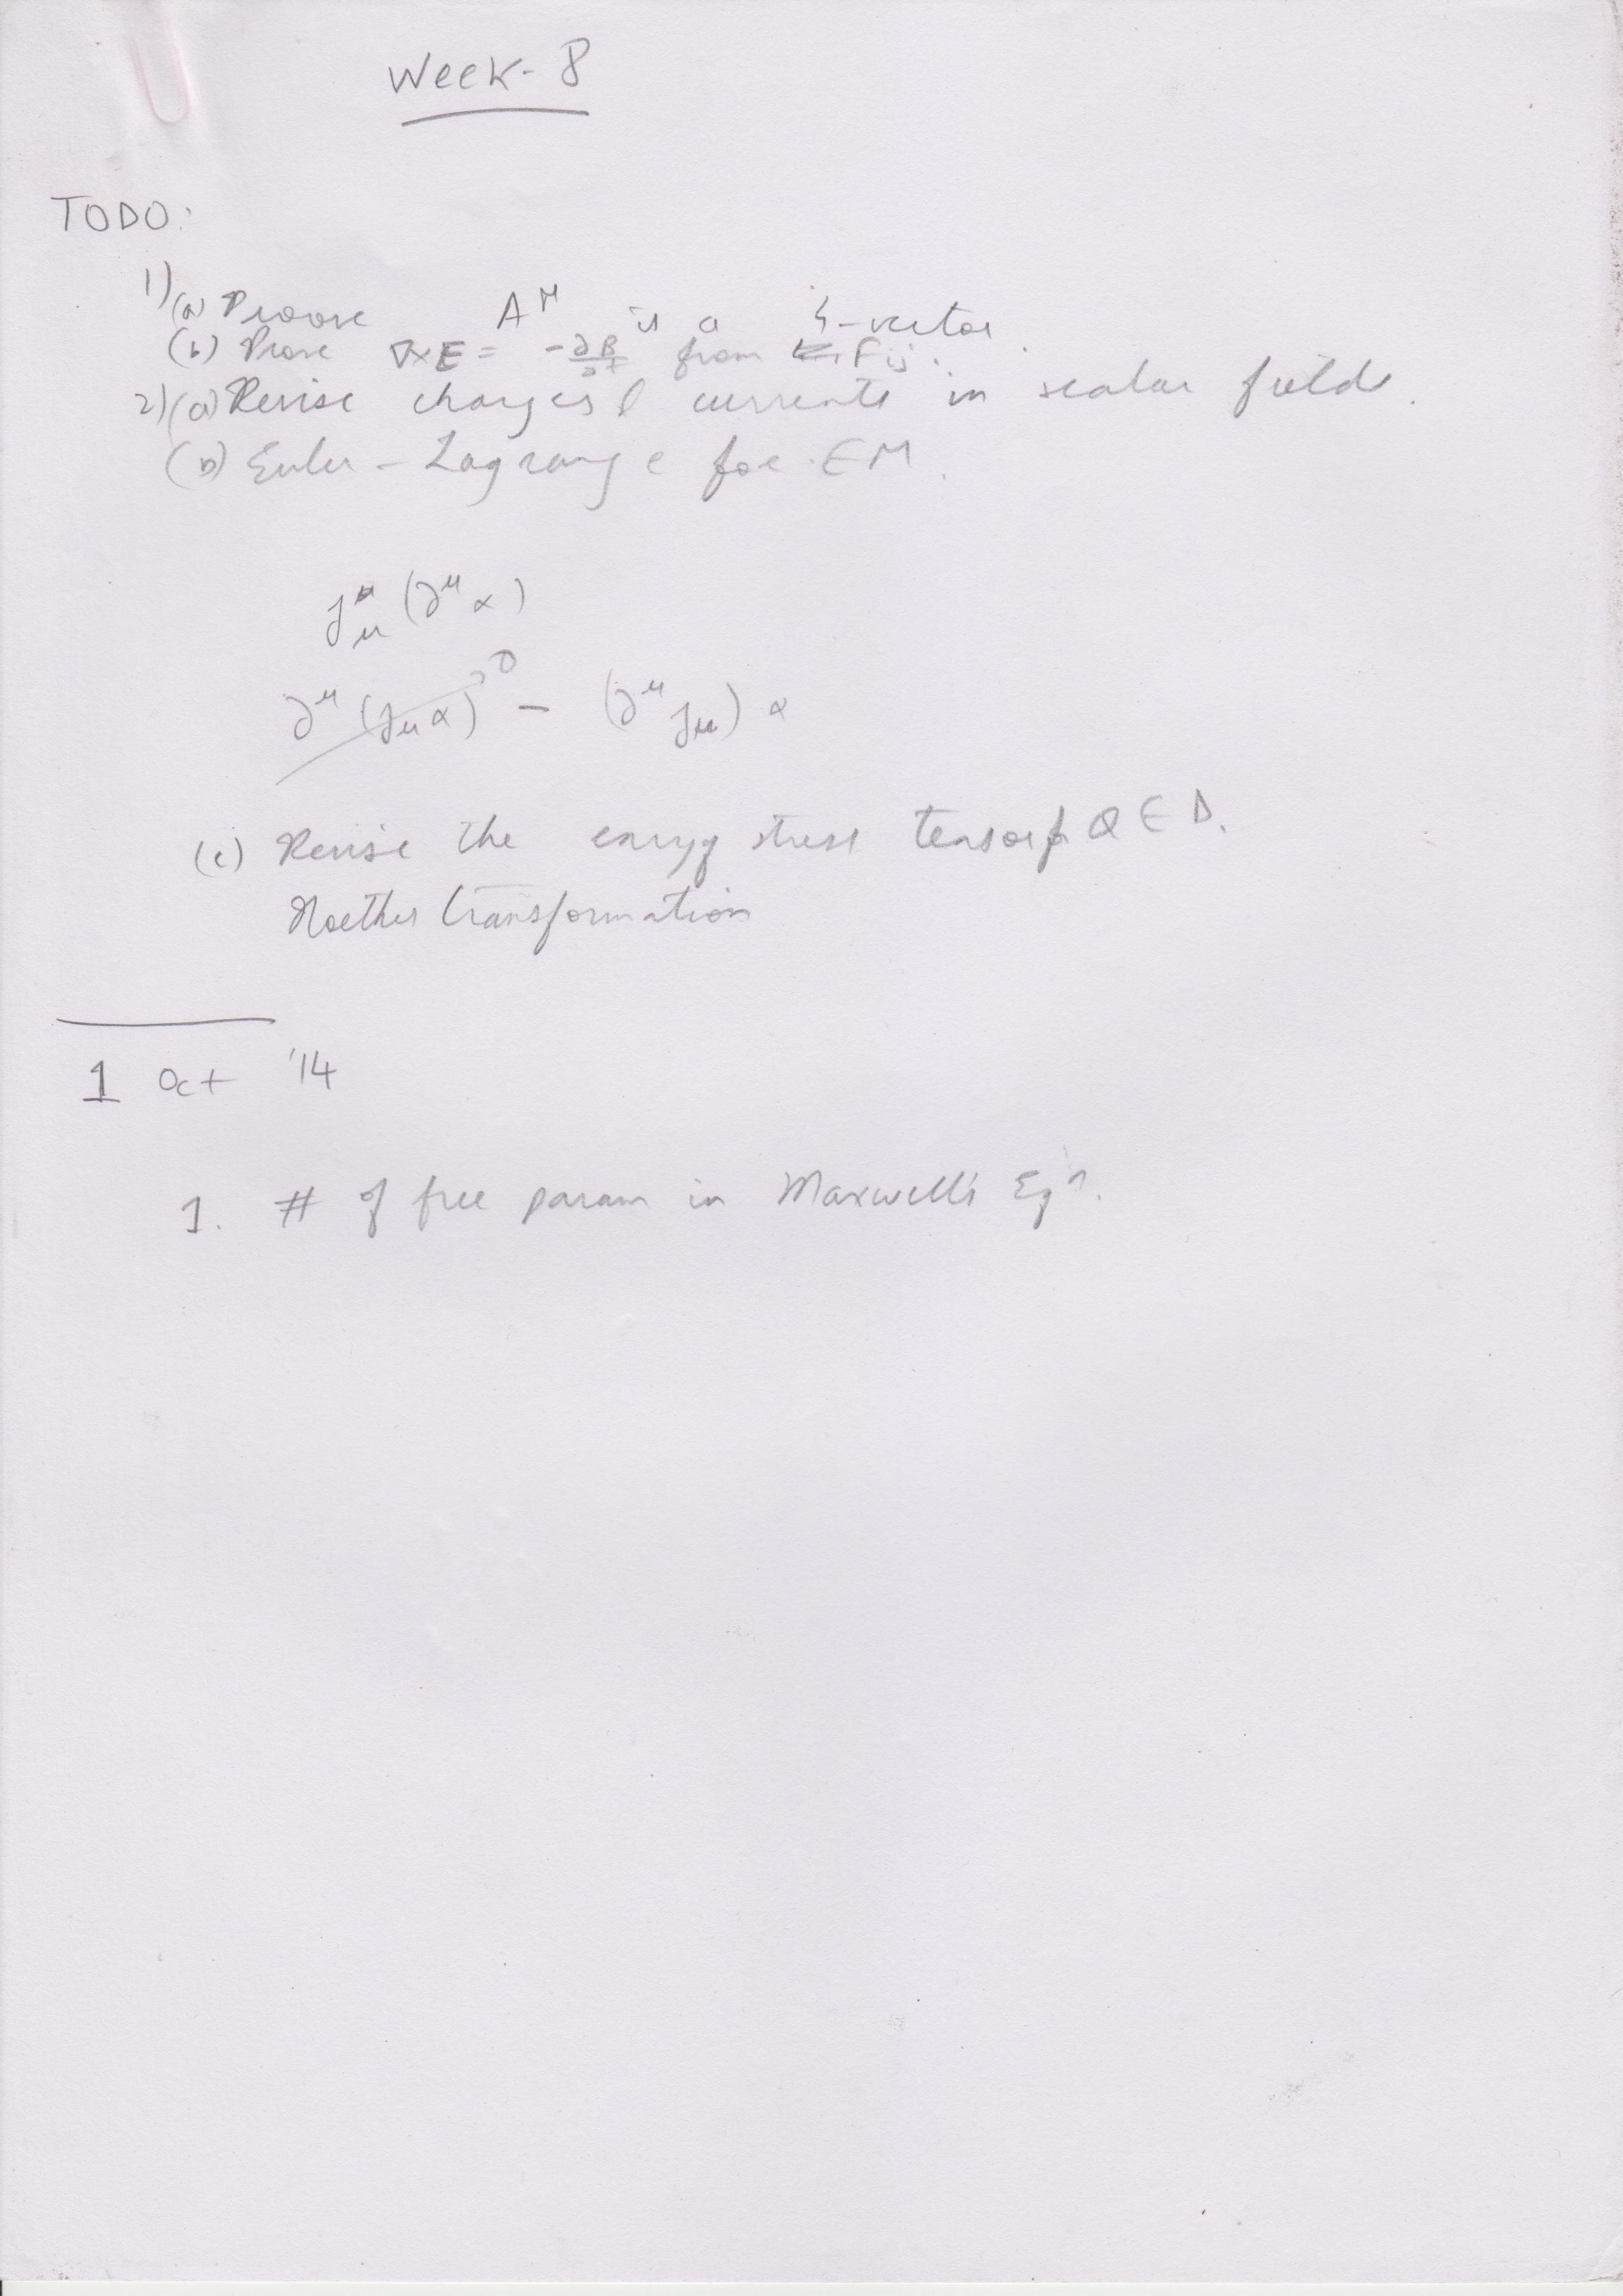 Week-8
TODO:
1)(a) Proove A^μ is a 4-vector.
(b) Prove ∇×E = -∂B/∂t from F_ij.
2)(a) Revise charges & currents in scalar fields.
(b) Euler-Lagrange for EM.
j_μ (∂^μ α)
∂^μ (j_μ α) 0 - (∂^μ j_μ) α
(c) Revise the enryg stress tensor QED.
Noether transformation
1 Oct '14
1. # of free param in Maxwell's Eqn.